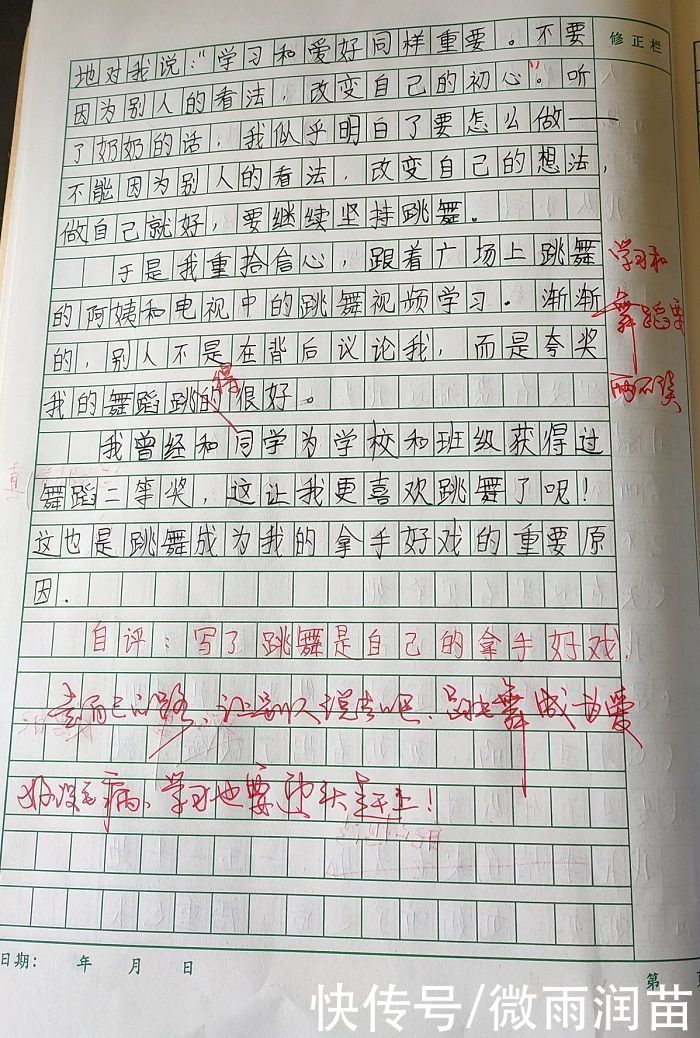 地对我说:“学习和爱好同样重要。不要
修正栏
因为别人的看法,改变自己的初心”。听
了奶奶的话,我似乎明白了要怎么做——
不能因为别人的看法,改变自己的想法,
做自己就好,要继续坚持跳舞。
于是我重拾信心,跟着广场上跳舞
学习和
的阿姨和电视中的跳舞视频学习。渐渐
舞蹈要
的,别人不是在背后议论我,而是夸奖
两不误
得
我的舞蹈跳的很好。
我曾经和同学为学校和班级获得过
舞蹈二等奖,这让我更喜欢跳舞了呢!
这也是跳舞成为我的拿手好戏的重要原
因.
自评:写了跳舞是自己的拿手好戏.
走自己的路、让别人说去吧、跳舞成为爱
好没毛病、学习也要迎头赶上!
日期: 年 月 日
第
快传号/微雨润苗